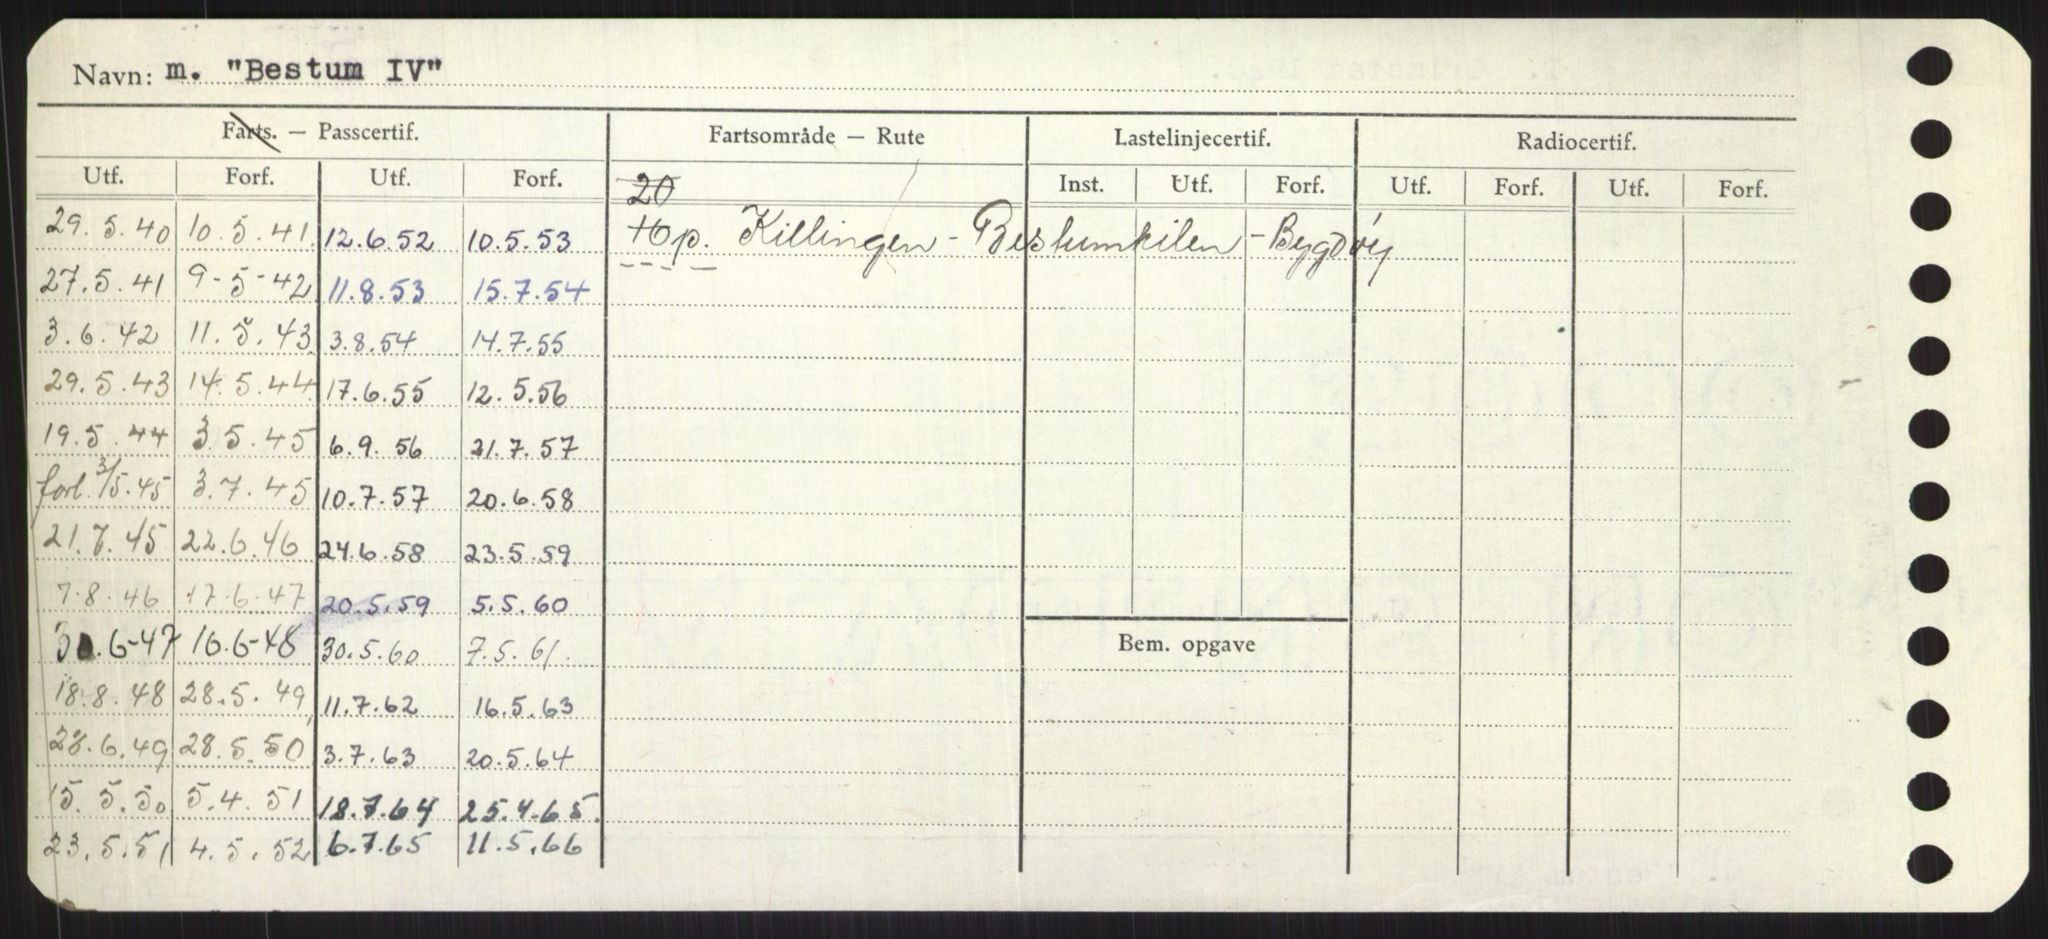 Navn: m. "Bestum IV"
Farts. — Passcertif. Fartsområde — Rute Lastelinjecertif. Radiocertif.
Utf. Forf. Utf. Forf. 20 Inst. Utf. Forf. Utf. Forf. Utf. Forf.
29.5.40 10.5.41 12.6.52 10.5.53 p. Killingen - Bestumkilen - Bygdöy
27.5.41 9-5-42 11.8.53 15.7.54
3.6.42 11.5.43 3.8.54 14.7.55
29.5.43 14.5.44 17.6.55 12.5.56
19.5.44 3.5.45 6.9.56 21.7.57
forl. 3/5.45 3.7.45 10.7.57 20.6.58
21.7.45 22.6.46 24.6.58 23.5.59
7.8.46 17.6.47 20.5.59 5.5.60
30.6-47 16.6-48 30.5.60 7.5.61. Bem. opgave
18.8.48 28.5.49 11.7.62 16.5.63
28.6.49 28.5.50 3.7.63 20.5.64
15.5.50 5.4.51 18.7.64 25.4.65.
23.5.51 4.5.52 6.7.65 11.5.66